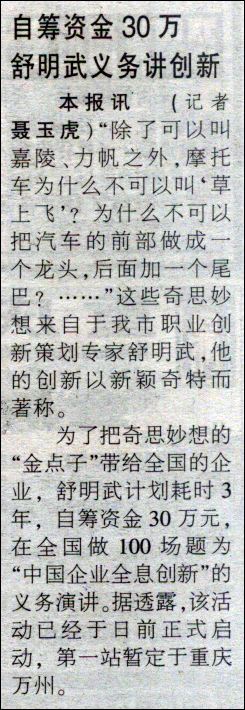 自筹资金30万
舒明武义务讲创新
本报讯 (记者
聂玉虎)“除了可以叫
嘉陵、力帆之外,摩托
车为什么不可以叫‘草
上飞’?为什么不可以
把汽车的前部做成一
个龙头,后面加一个尾
巴?……”这些奇思妙
想来自于我市职业创
新策划专家舒明武,他
的创新以新颖奇特而
著称。
为了把奇思妙想的
“金点子”带给全国的企
业,舒明武计划耗时3
年,自筹资金30万元,
在全国做100场题为
“中国企业全息创新”的
义务演讲。据透露,该活
动已经于日前正式启
动,第一站暂定于重庆
万州。